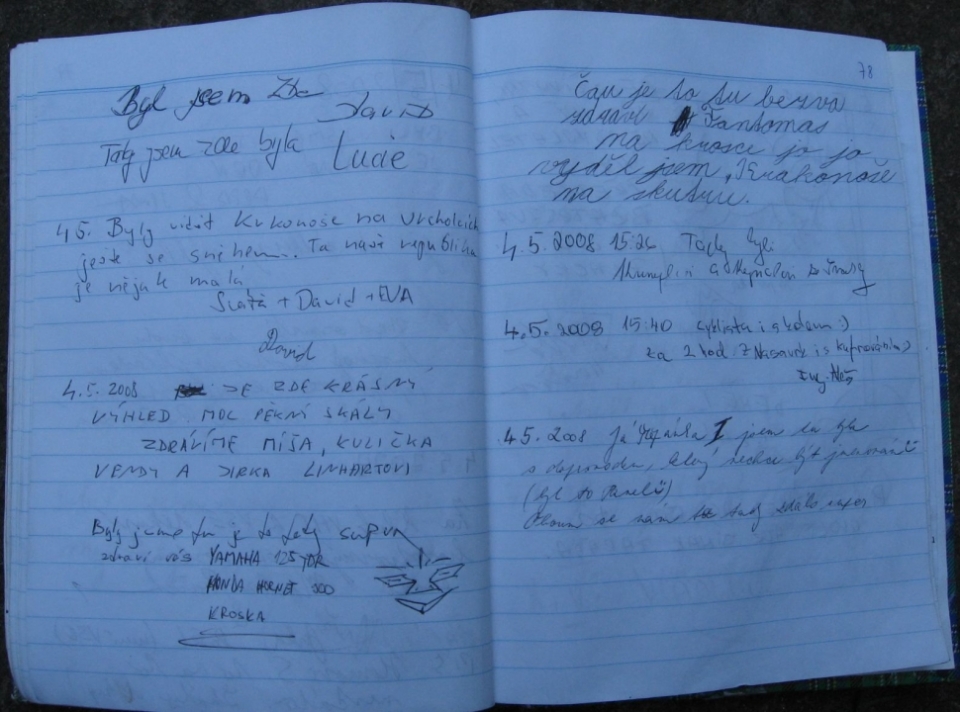 Byl jsem Zde
DAVID
Taky jsem zde byla Lucie
4.5. Byly vidět Krkonoše na vrcholcích
ještě se sněhem. Ta naše republika
je nějak malá
+ David + EVA
David
4.5.2008 JE ZDE KRÁSNÝ
VÝHLED MOC PĚKNÍ SKÁLY
ZDRAVÍME MÍŠA, KULIČKA
VENDY A JIRKA LINHARTOVI
Byly jsme tu je to tady supr
zdraví vás YAMAHA 125
HONDA HORNET
KROSKA
78
Čau je to tu bezva
zdraví Fantomas
na krosce jo jo
vyděl jsem Krakonoše
na skutru.
4.5.2008 15:26 Tady byli
4.5.2008 15:40 cyklista i s kolem :)
za 2 hod. z Nasavrk i s
4.5.2008 Já I jsem tu byla
s doprovodem, který nechce být jmenován
(byl to
se nám to tady zdálo super